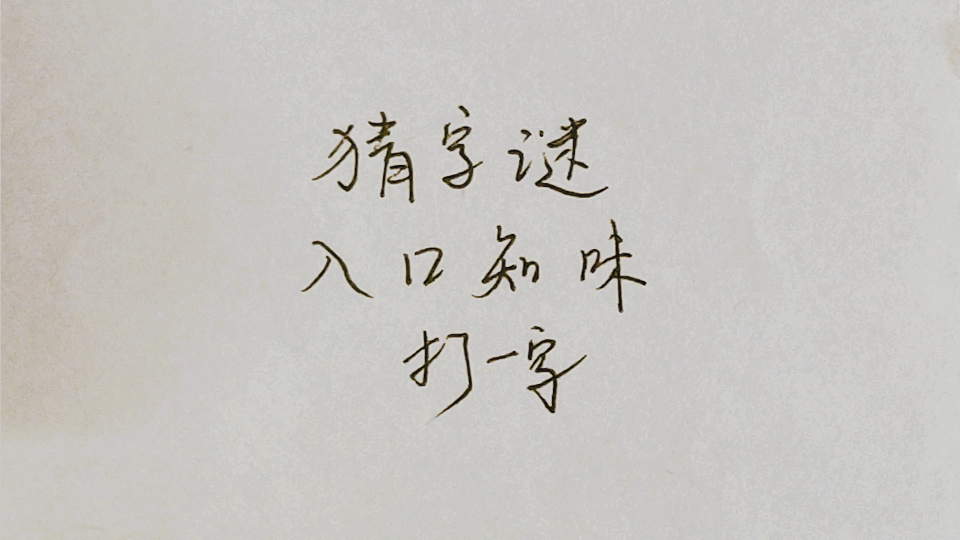 猜字谜
入口知味
打一字